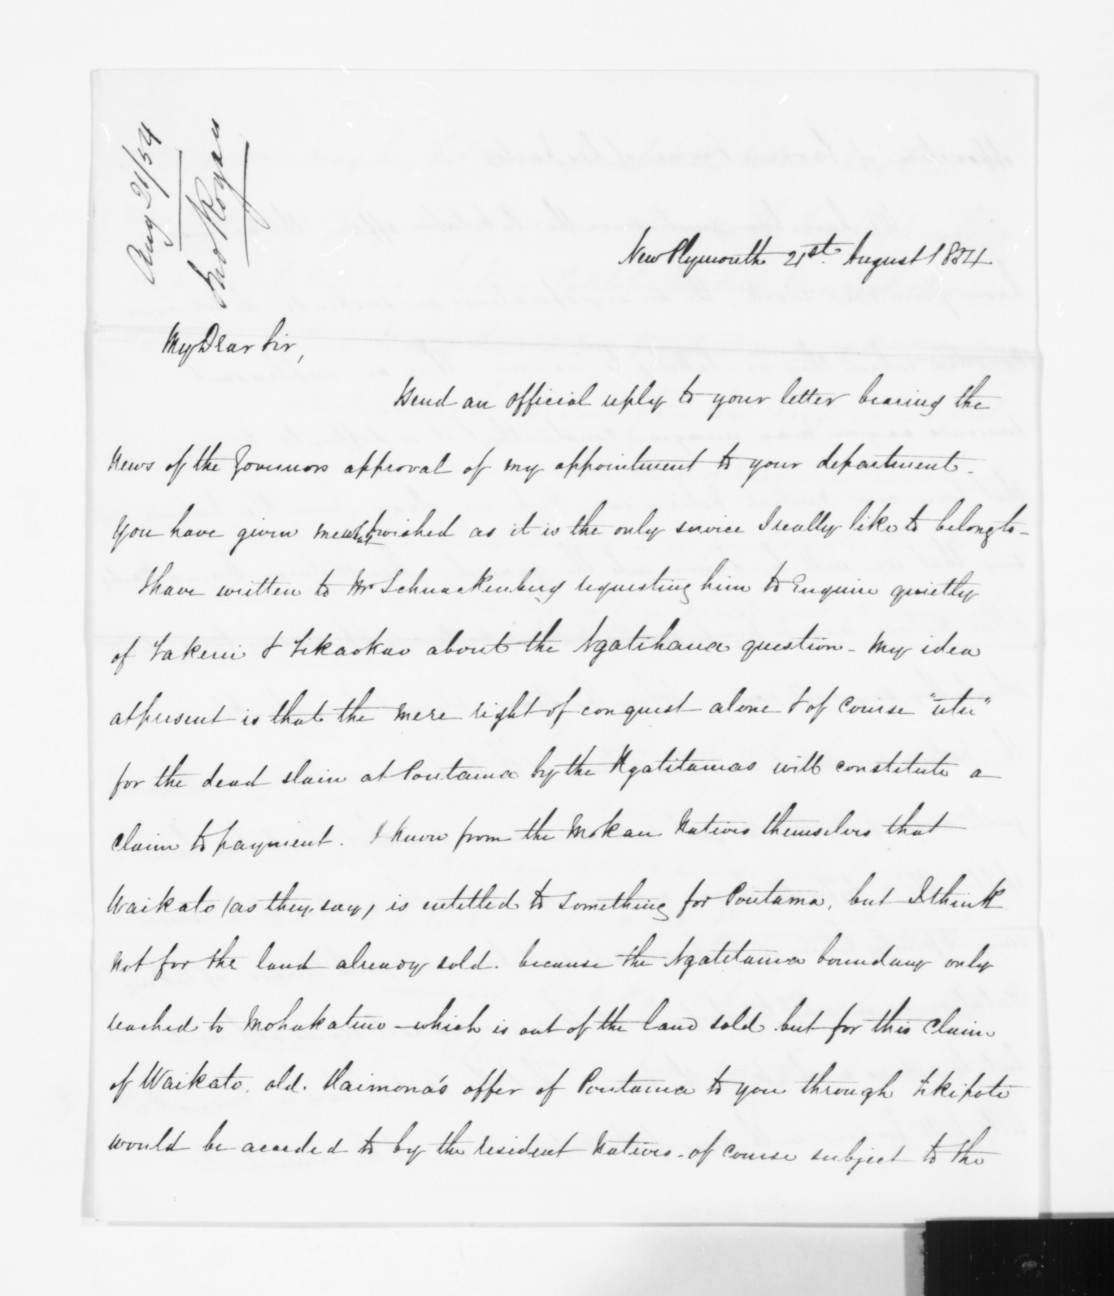 Aug 21/54
Jno Rogan
New Plymouth 21st. August 1854
My Dear Sir,
I send an official reply to your letter bearing the
news of the Governors approval of my appointment to your department.
You have given me what I wished as it is the only service I really like to belong to -
I have written to Mr Schnackenberg requesting him to enquire quietly
of Takerei & Tikaokao about the Ngatihaua question - My idea
at present is that the mere right of conquest alone & of course "utu"
for the dead slain at Poutama by the Ngatitamas will constitute a
claim to payment. I know from the Mokau Natives themselves that
Waikato (as they say) is entitled to something for Poutama, but I think
not for the land already sold. because the Ngatitama boundary only
reached to Mohakatino - which is out of the land sold but for this claim
of Waikato. old Haimona's offer of Poutama to you through
would be acceded to by the resident Natives - of course subject to the